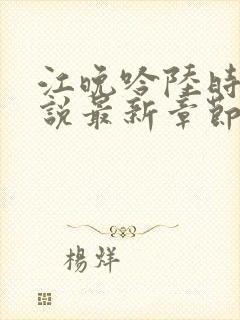 江晚吟陸時
說最新章節
楊烊